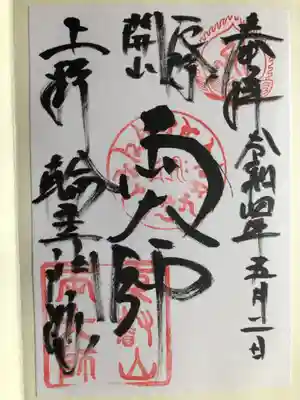 奉拝 令和四年五月二日
開山
両大師
上野 輪王寺門跡